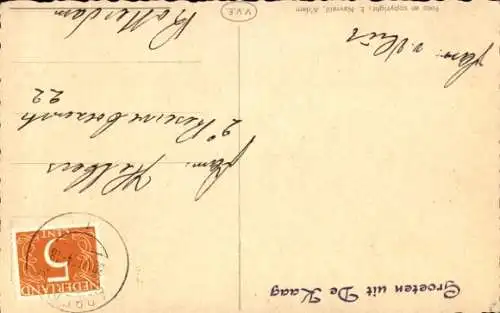 Groeten uit De Kaag
Fam: v. Vliet
Foto en copyright: E. Navratil, A'dam
V.V.E.
NEDERLAND
5
CENT
Fam: Helbers
2e Reserveboezemstr
22
Rotterdam